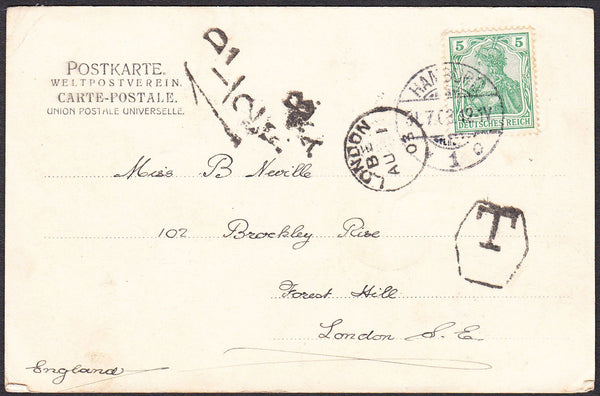 POSTKARTE.
WELTPOSTVEREIN.
CARTE-POSTALE.
UNION POSTALE UNIVERSELLE.
5 5
DEUTSCHES REICH
HAMBURG
1
LONDON
BE
AU 1
03
T
Miss B Neville
102 Brockley Rise
Forest Hill
London S.E.
England